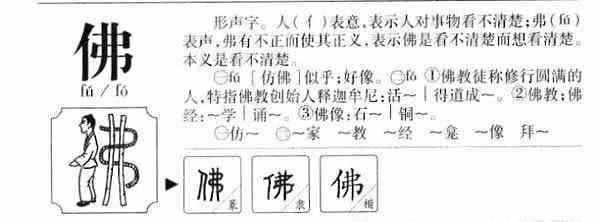 佛
fú / fó
形声字。人(亻)表意,表示人对事物看不清楚;弗(fú)
表声,弗有不正而使其正义,表示佛是看不清楚而想看清楚。
本义是看不清楚。
㊀fú [仿佛]似乎;好像。㊁fó ①佛教徒称修行圆满的
人,特指佛教创始人释迦牟尼:活~|得道成~。②佛教;佛
经:~学|诵~。③佛像:石~|铜~。
㊀仿~ ㊁~家 ~教 ~经 ~龛 ~像 拜~
佛 篆
佛 隶
佛 楷